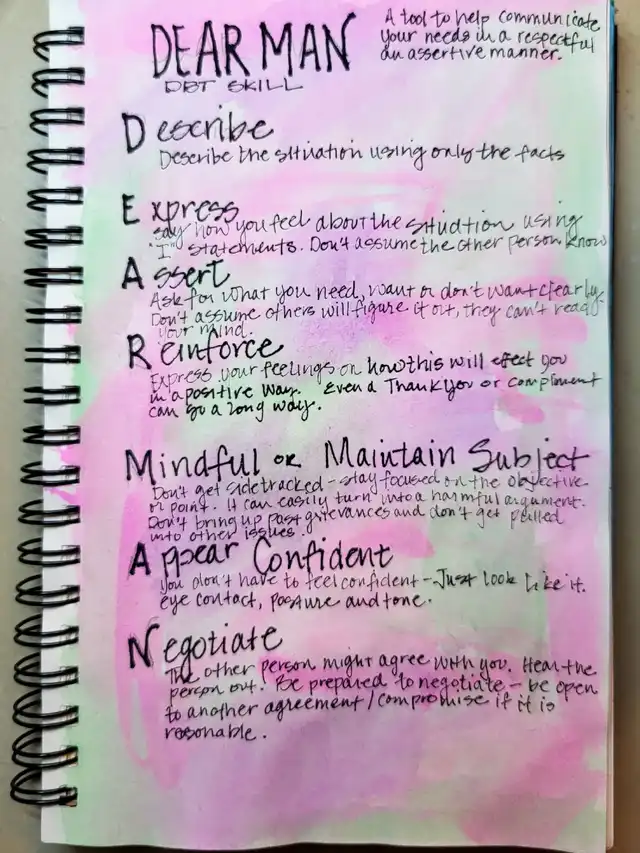 DEAR MAN
DBT SKILL
A tool to help communicate
your needs in a respectful
an assertive manner.
Describe
Describe the situation using only the facts
Express
say how you feel about the situation using
"I" statements. Don't assume the other person know
Assert
Ask for what you need, want or don't want clearly.
Don't assume others will figure it out, they can't read
your mind.
Reinforce
Express your feelings on how this will effect you
in a positive way. Even a Thank you or compliment
can go a long way.
Mindful or Maintain Subject
Don't get sidetracked - stay focused on the objective
or point. It can easily turn into a harmful argument.
Don't bring up past grievances and don't get pulled
into other issues.
Appear Confident
You don't have to feel confident - Just look like it.
eye contact, posture and tone.
Negotiate
The other person might agree with you. Hear the
person out. Be prepared to negotiate - be open
to another agreement/compromise if it is
resonable.